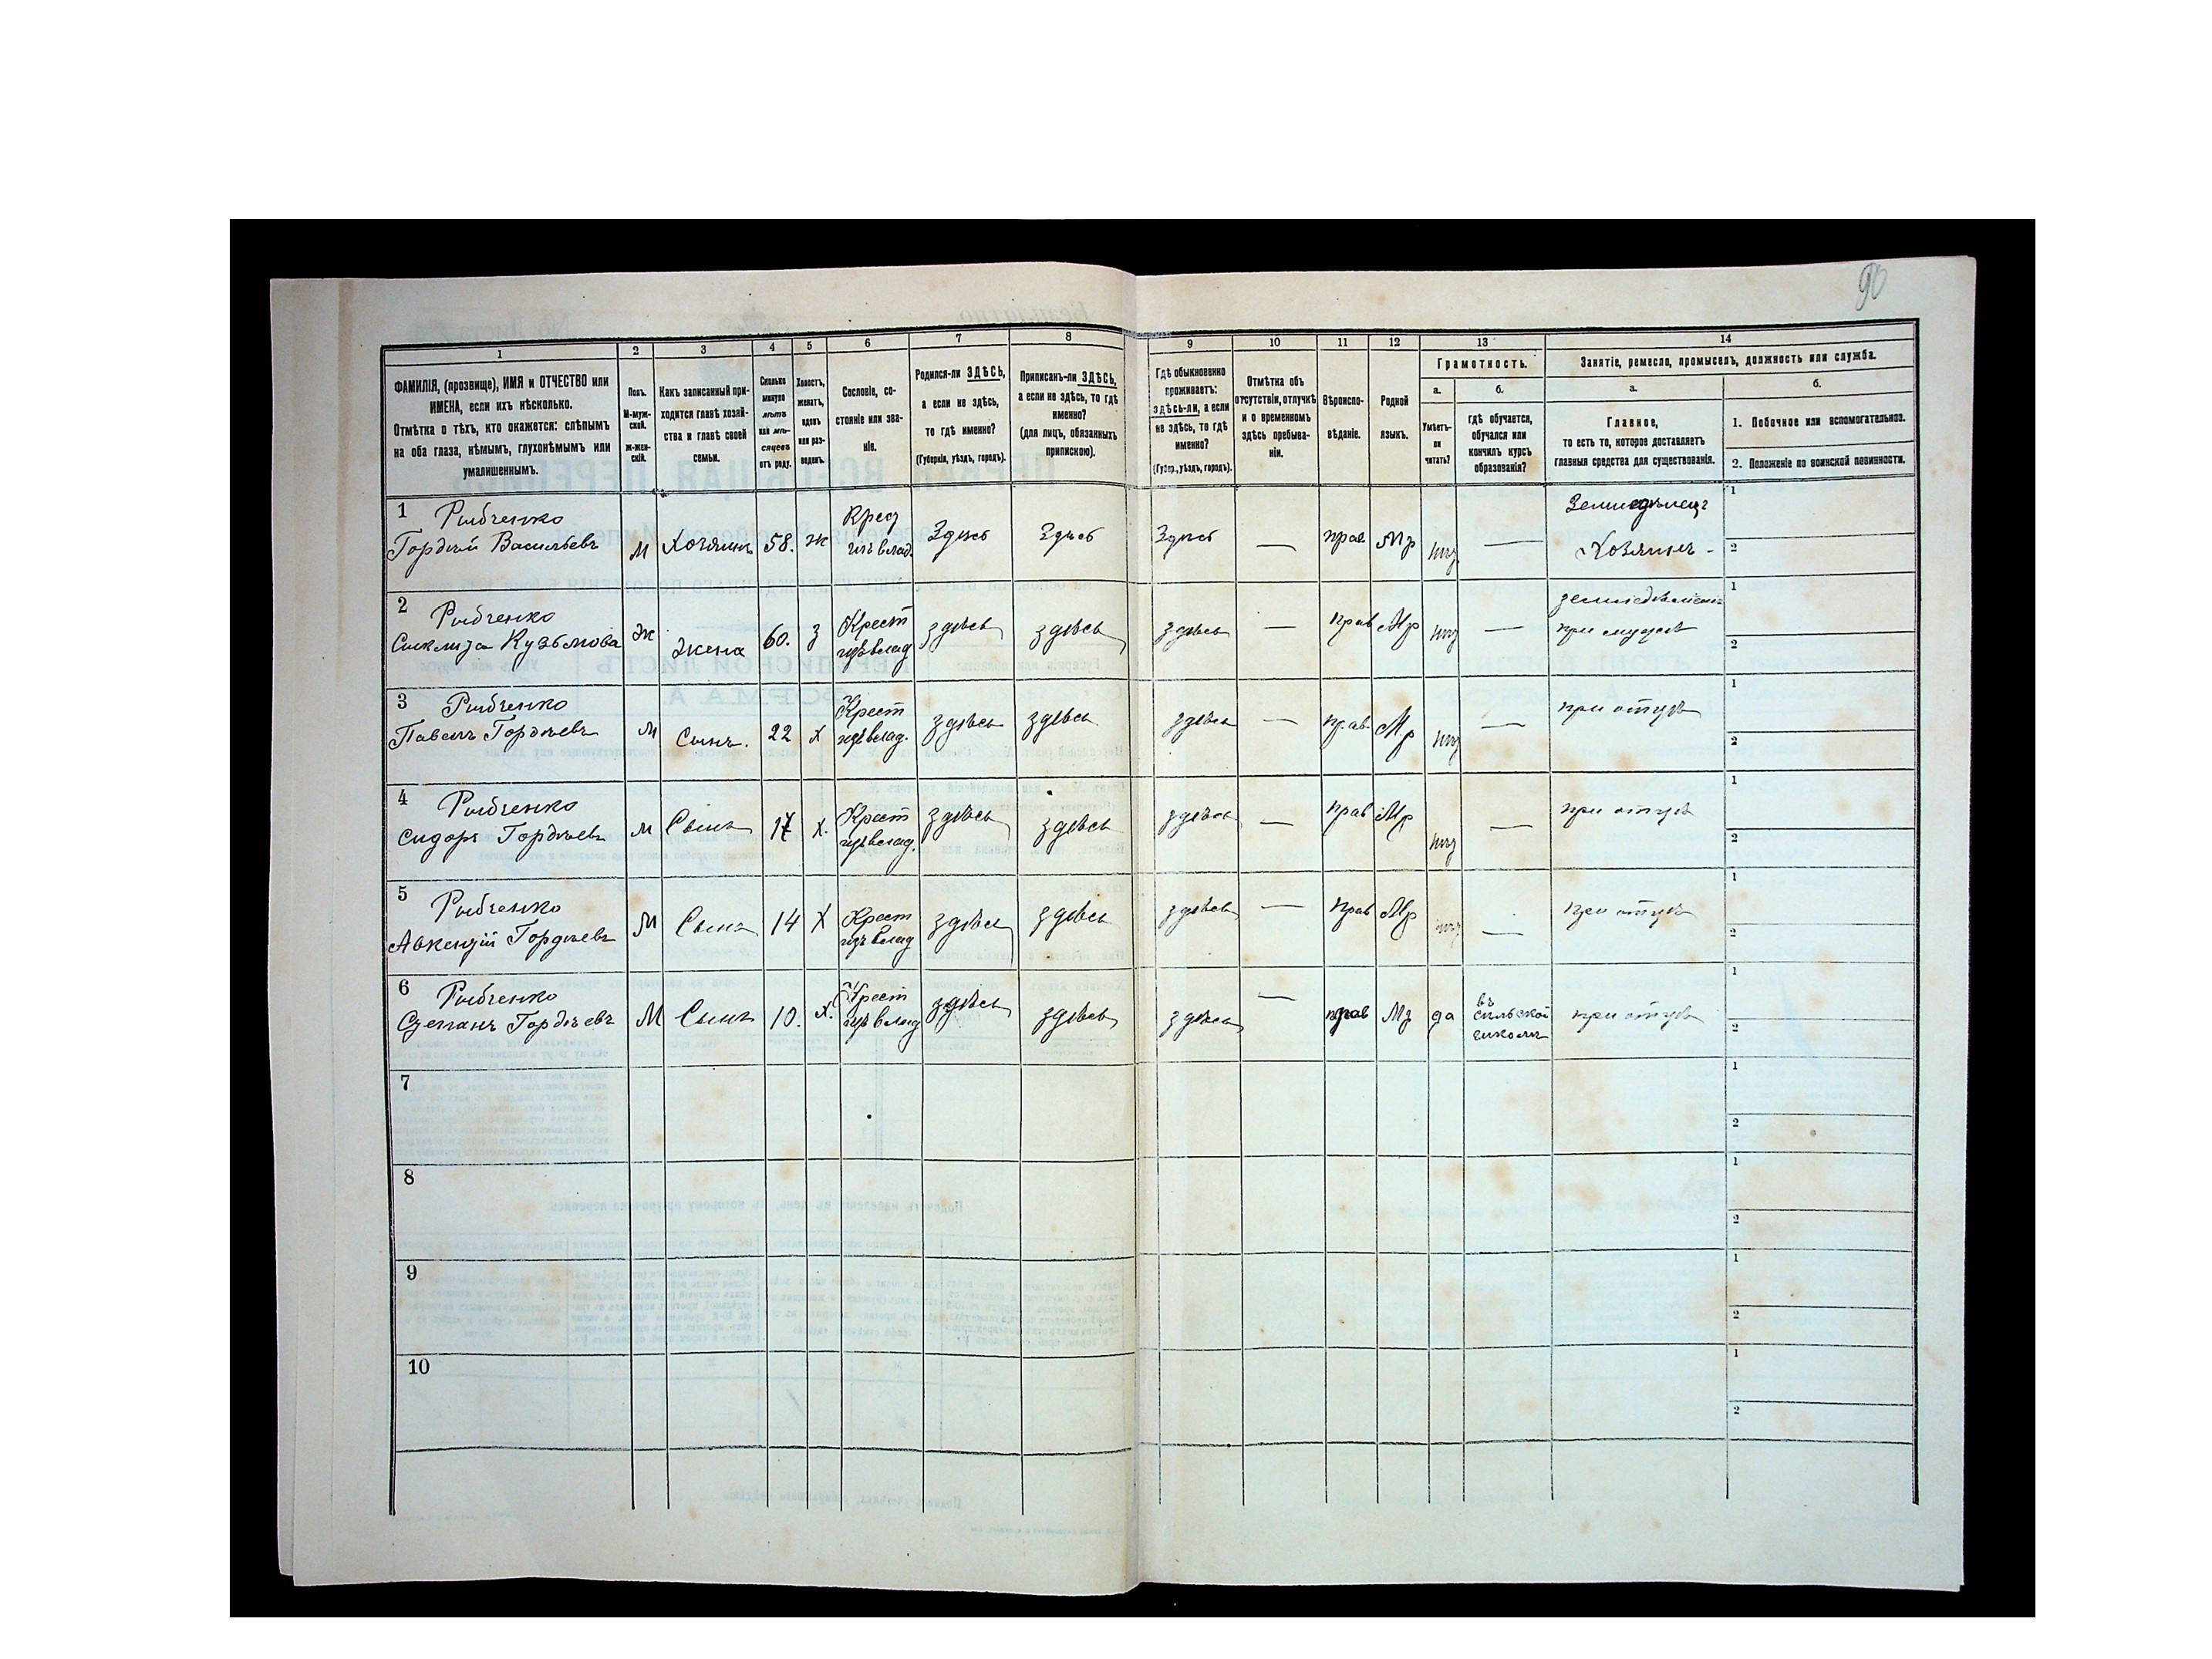 90
1
2
3
4
5
6
7
8
9
10
11
12
13
14
ФАМИЛІЯ, (прозвище), ИМЯ и ОТЧЕСТВО или
ИМЕНА, если ихъ нѣсколько.
Отмѣтка о тѣхъ, кто окажется: слѣпымъ
на оба глаза, нѣмымъ, глухонѣмымъ или
умалишеннымъ.
Полъ.
М-муж-
ской.
Ж-жен-
скій.
Какъ записанный при-
ходится главѣ хозяй-
ства и главѣ своей
семьи.
Сколько
минуло
лѣтъ
или мѣ-
сяцевъ
отъ роду.
Холостъ,
женатъ,
вдовъ
или раз-
веденъ.
Сословіе, со-
стояніе или зва-
ніе.
Родился-ли ЗДѢСЬ,
а если не здѣсь,
то гдѣ именно?
(Губернія, уѣздъ, городъ).
Приписанъ-ли ЗДѢСЬ,
а если не здѣсь, то гдѣ
именно?
(для лицъ, обязанныхъ
припискою).
Гдѣ обыкновенно
проживаетъ:
здѣсь-ли, а если
не здѣсь, то гдѣ
именно?
(Губер., уѣздъ, городъ).
Отмѣтка объ
отсутствіи, отлучкѣ
и о временномъ
здѣсь пребыва-
ніи.
Вѣроиспо-
вѣданіе.
Родной
языкъ.
Грамотность.
а.
Умѣетъ-
ли
читать?
б.
гдѣ обучается,
обучался или
кончилъ курсъ
образованія?
Занятіе, ремесло, промыселъ, должность или служба.
а.
Главное,
то есть то, которое доставляетъ
главныя средства для существованія.
б.
1. Побочное или вспомогательное.
2. Положеніе по воинской повинности.
1 Рыбченко
Гордѣй Васильевъ
М Хозяинъ 58. ж
Крест
изъ влад.
Здѣсь Здѣсь Здѣсь — прав Мр —
Земледѣлецъ
Хозяинъ -
1
2
2 Рыбченко
Кузьмова
Ж жена 60. з
Крест
изъ влад
здѣсь здѣсь здѣсь — прав Мр —
при мужѣ
1
2
3 Рыбченко
Павелъ Гордѣевъ
М Сынъ. 22 х
Крест
изъ влад.
здѣсь здѣсь здѣсь — прав Мр —
при отцѣ
1
2
4 Рыбченко
Сидоръ Гордѣевъ
М Сынъ 17 х.
Крест
изъ влад.
здѣсь здѣсь здѣсь — прав Мр —
при отцѣ
1
2
5 Рыбченко
Авкентій Гордѣевъ
М Сынъ 14 х
Крест
изъ влад
здѣсь здѣсь здѣсь — прав Мр —
при отцѣ
1
2
6 Рыбченко
Степанъ Гордѣевъ
М Сынъ 10. х.
Крест
изъ влад
здѣсь здѣсь здѣсь — прав Мр да
въ
сельской
школѣ
при отцѣ
1
2
7
1
2
8
1
2
9
1
2
10
1
2